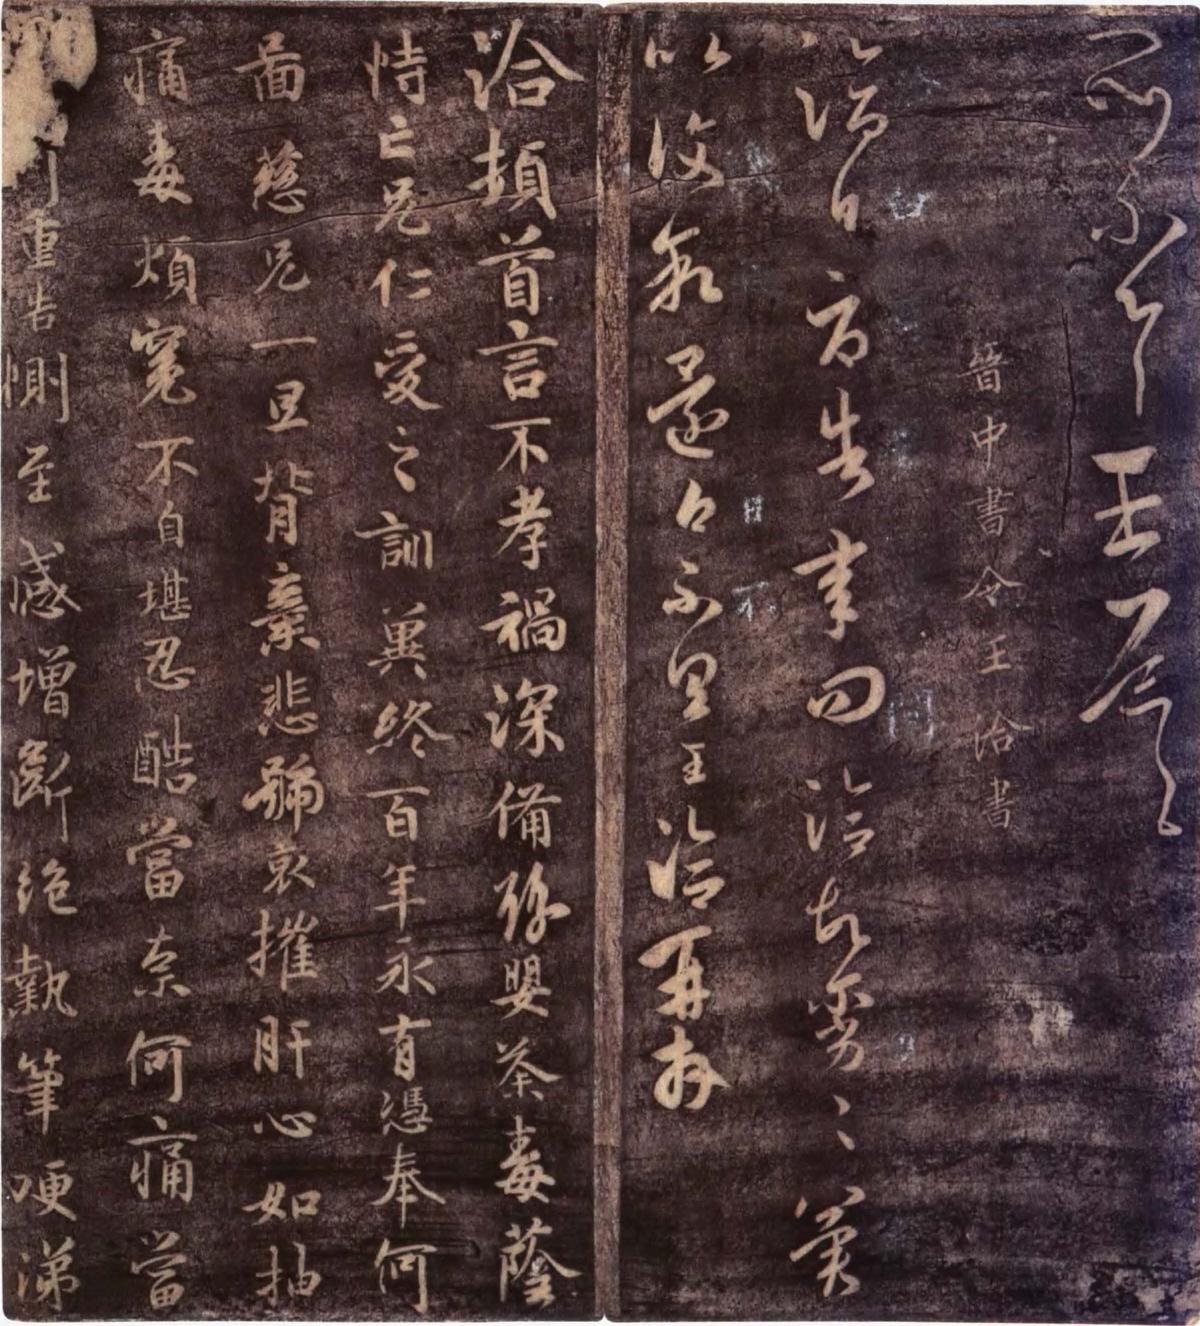 王
晉中書令王洽書
洽白 告承問洽故劣〻冀
以復敘還白不具王洽再拜
洽頓首言不孝禍深備豫嬰荼毒蔭
恃亡兄仁受之訓冀終百年永有憑奉何
啚慈兄一旦背棄悲號哀摧肝心如抽
痛毒煩冤不自堪忍酷當奈何痛當
重告惻至感增斷絕執筆哽涕